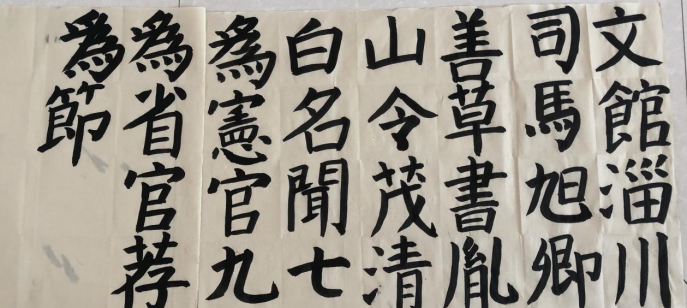 文館淄川
司馬旭卿
善草書胤
山令茂清
白名聞七
為憲官九
為省官荐
為節